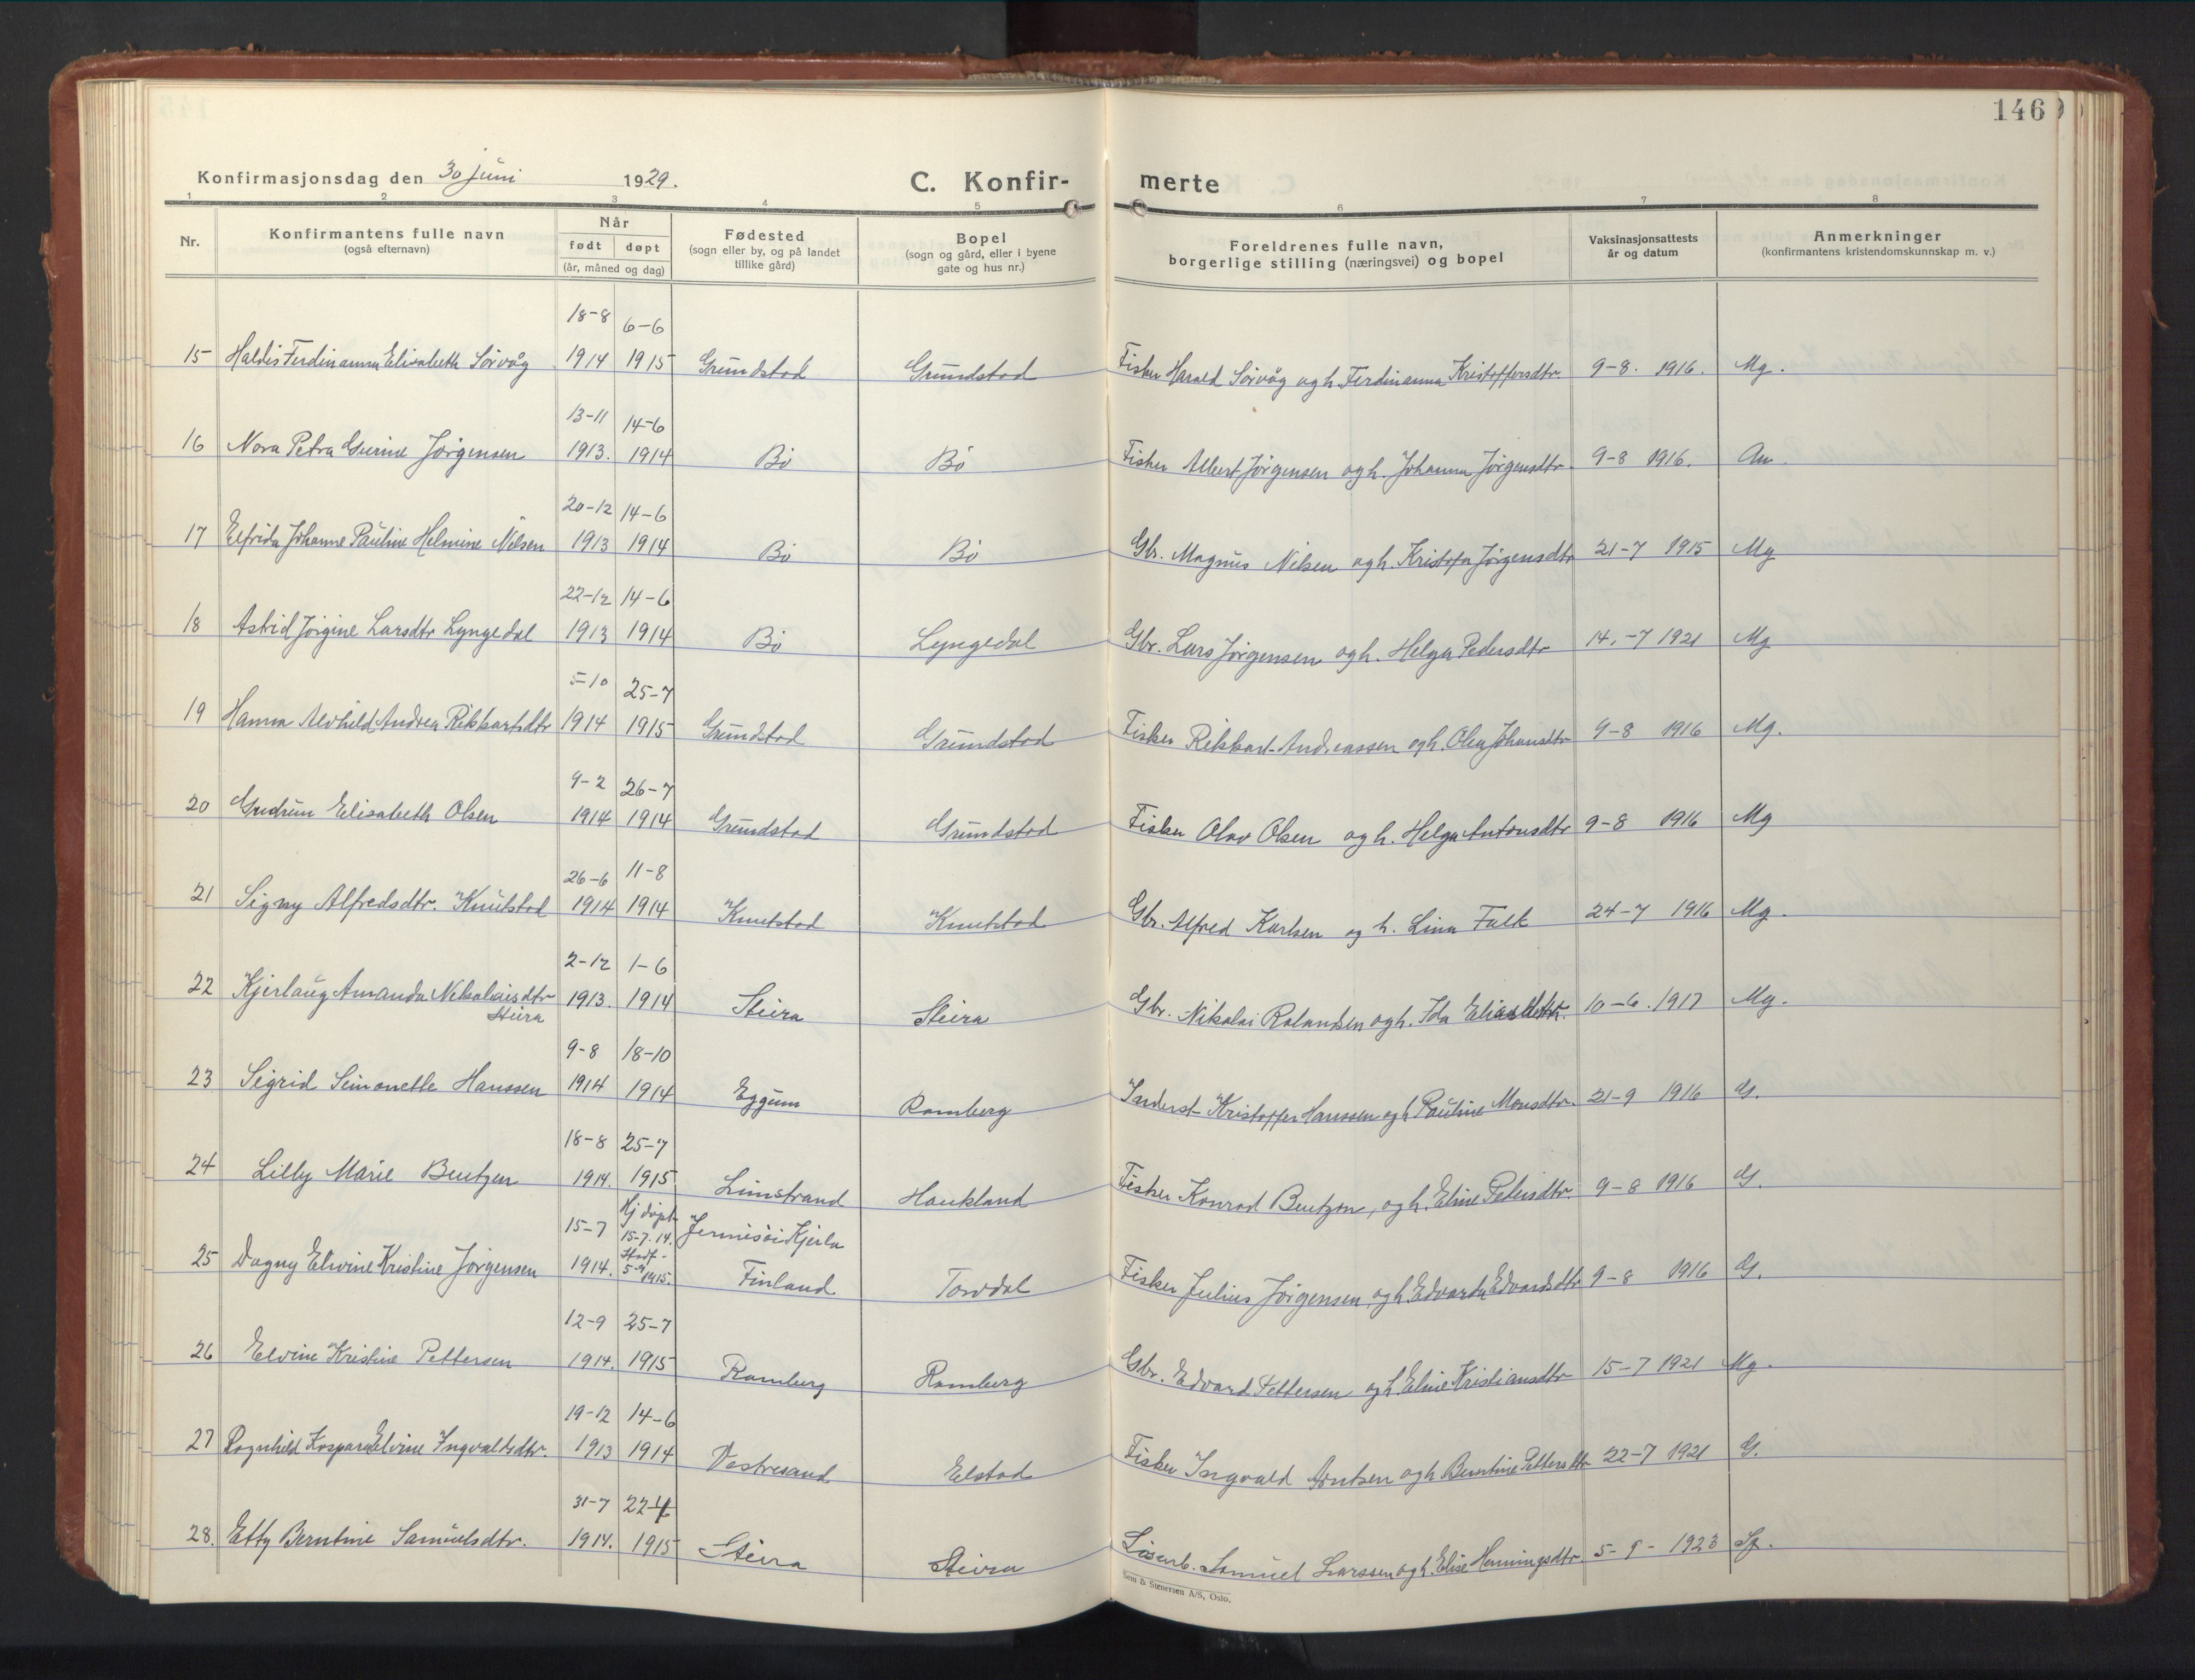 146
Konfirmasjonsdag den 30 juni 1929. C. Konfir- merte
1 2 3 4 5 6 7 8
Nr. Konfirmantens fulle navn (også efternavn) Når født døpt (år, måned og dag) Fødested (sogn eller by, og på landet tillike gård) Bopel (sogn og gård, eller i byene gate og hus nr.) Foreldrenes fulle navn, borgerlige stilling (næringsvei) og bopel Vaksinasjonsattests år og datum Anmerkninger (konfirmantens kristendomskunnskap m. v.)
15 Haldis Ferdinanna Elisabeth Sørvåg 18-8 1914 6-6 1915 Grundstad Grundstad Fisker Harald Sørvåg og h. Ferdinanna Kristoffersdtr. 9-8. 1916. Mg.
16 Nora Petra Gurine Jørgensen 13-11 1913. 14-6 1914 Bø Bø Fisker Albert Jørgensen og h. Johanna Jørgensdtr. 9-8 1916. Am.
17 Elfrida Johanne Pauline Helmine Nilsen 20-12 1913 14-6 1914 Bø Bø Gbr. Magnus Nilsen og h. Kristofa Jørgensdtr 21-7 1915 Mg
18 Astrid Jørgine Larsdtr Lyngedal 22-12 1913 14-6 1914 Bø Lyngedal Gbr. Lars Jørgensen og h. Helga Pedersdtr 14.-7 1921 Mg
19 Hanna Alvhild Andrea Rikkartsdtr 5-10 1914 25-7 1915 Grundstad Grundstad Fisker Rikkart Andreassen og h. Olea Johansdtr 9-8 1916 Mg.
20 Gudrun Elisabeth Olsen 9-2 1914 26-7 1914 Grundstad Grundstad Fisker Olav Olsen og h. Helga Antonsdtr 9-8 1916 Mg
21 Signy Alfredsdtr. Knutstad 26-6 1914 11-8 1914 Knutstad Knutstad Gbr. Alfred Karlsen og h. Lina Falk 24-7 1916 Mg.
22 Kjerlaug Amanda Nikolaisdtr Steira 2-12 1913. 1-6 1914 Steira Steira Gbr. Nikolai Rolandsen og h. Ida 10-6. 1917 Mg.
23 Sigrid Simonette Hanssen 9-8 1914 18-10 1914 Eggum Ramberg Kristoffer Hanssen og h. Pauline Monsdtr. 21-9 1916 G.
24 Lilly Marie Bentzen 18-8 1914. 25-7 1915 Limstrand Haukland Fisker Konrad Bentzen, og h. Eline Petersdtr. 9-8 1916 G.
25 Dagny Elvine Kristine Jørgensen 15-7 1914. Hj døpt 15-7.14. Stadf. 5-9 1915. Finland Torvdal Fisker Julius Jørgensen og h. Edvarda Edvardsdtr 9-8 1916 G.
26 Elvine Kristine Pettersen 12-9 1914. 25-7 1915 Ramberg Ramberg Gbr. Edvard Pettersen og h. Eline Kristiansdtr 15-7 1921 Mg.
27 Ragnhild Kaspara Elvine Ingvaldsdtr. 19-12 1913 14-6 1914 Vestresand Elstad Fisker Ingvald Arntsen og h. Berntine Pettersdtr 22-7 1921 G.
28. Etty Berntine Samuelsdtr. 31-7 1914. 22-4 1915 Steira Steira Løsarb. Samuel Larssen og h. Elise Henningsdtr. 5-9-1923
Sem & Stenersen A/S, Oslo.